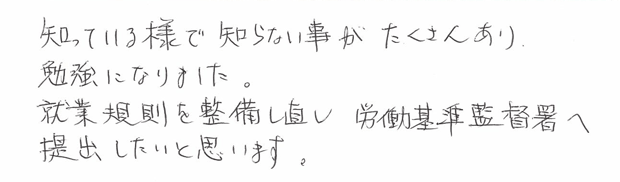 知っている様で知らない事がたくさんあり、
勉強になりました。
就業規則を整備し直し 労働基準監督署へ
提出したいと思います。